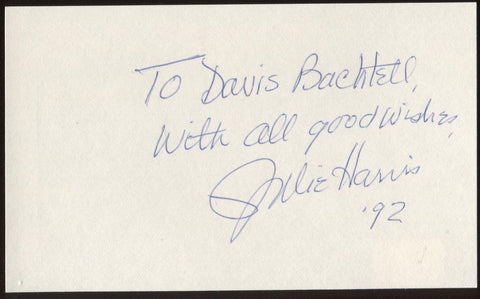 To Davis Bachtell,
With all good wishes,
Julie Harris
'92